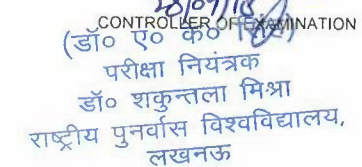 28/09/18
CONTROLLER OF EXAMINATION
(डॉ० ए० के०
परीक्षा नियंत्रक
डॉ० शकुन्तला मिश्रा
राष्ट्रीय पुनर्वास विश्वविद्यालय,
लखनऊ